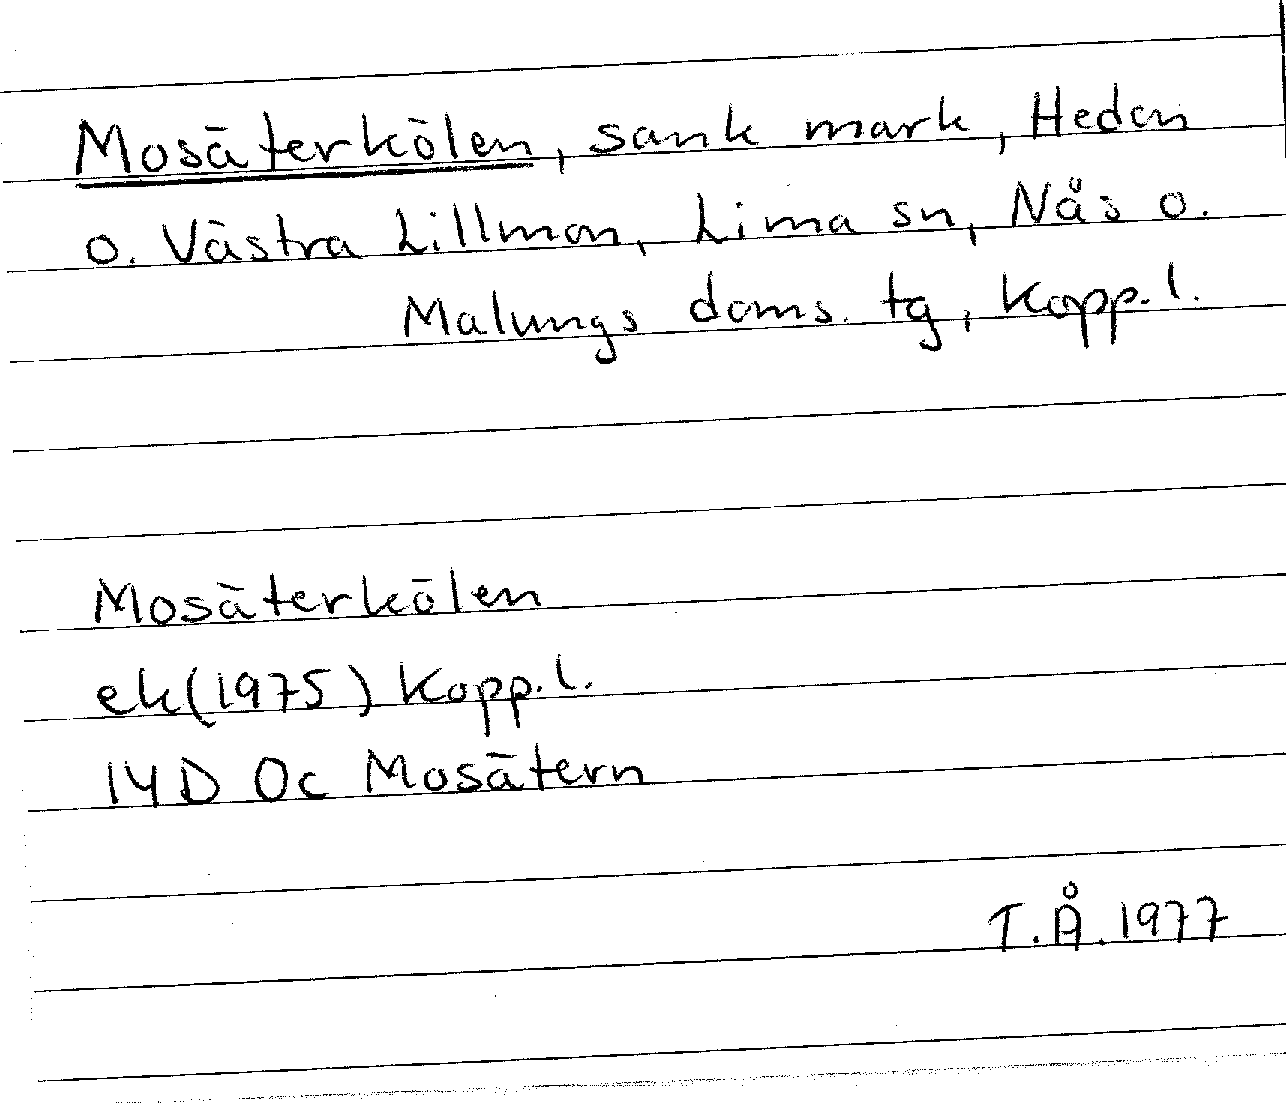 Mosäterkölen, sank mark, Heden
o. Västra Lillmon, Lima sn, Nås o.
Malungs doms. tg, Kopp. l.
Mosäterkölen
ek(1975) Kopp. l.
14D 0c Mosätern
T.Å. 1977